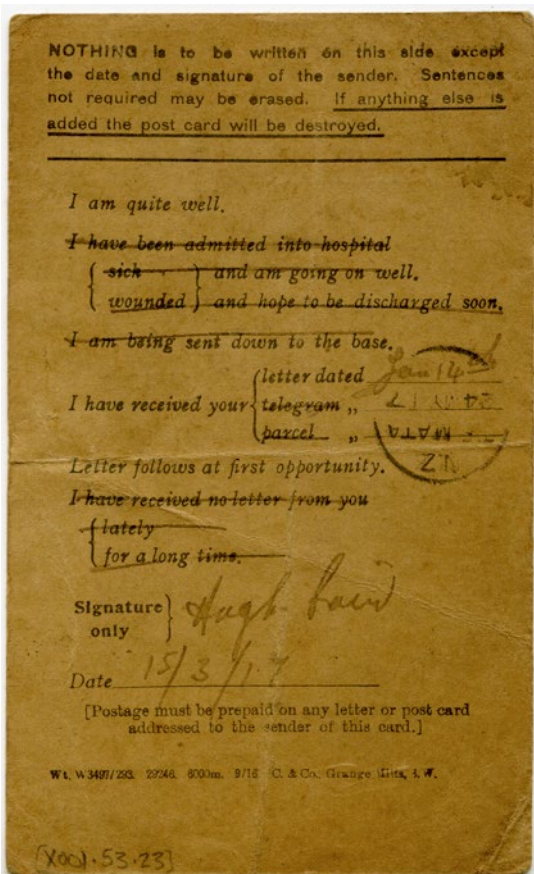 NOTHING is to be written on this side except
the date and signature of the sender. Sentences
not required may be erased. If anything else is
added the post card will be destroyed.
I am quite well.
I have been admitted into hospital
sick and am going on well.
wounded and hope to be discharged soon.
I am being sent down to the base.
letter dated Jan 14th
I have received your telegram „
parcel „
Letter follows at first opportunity.
I have received no letter from you
lately
for a long time.
Signature
only
Hugh
Date 15/3/17
[Postage must be prepaid on any letter or post card
addressed to the sender of this card.]
Wt. W3497/293. 29246. 6000m. 9/16 C. & Co., Grange Mills, S.W.
N.Z.
[X001.53.23]